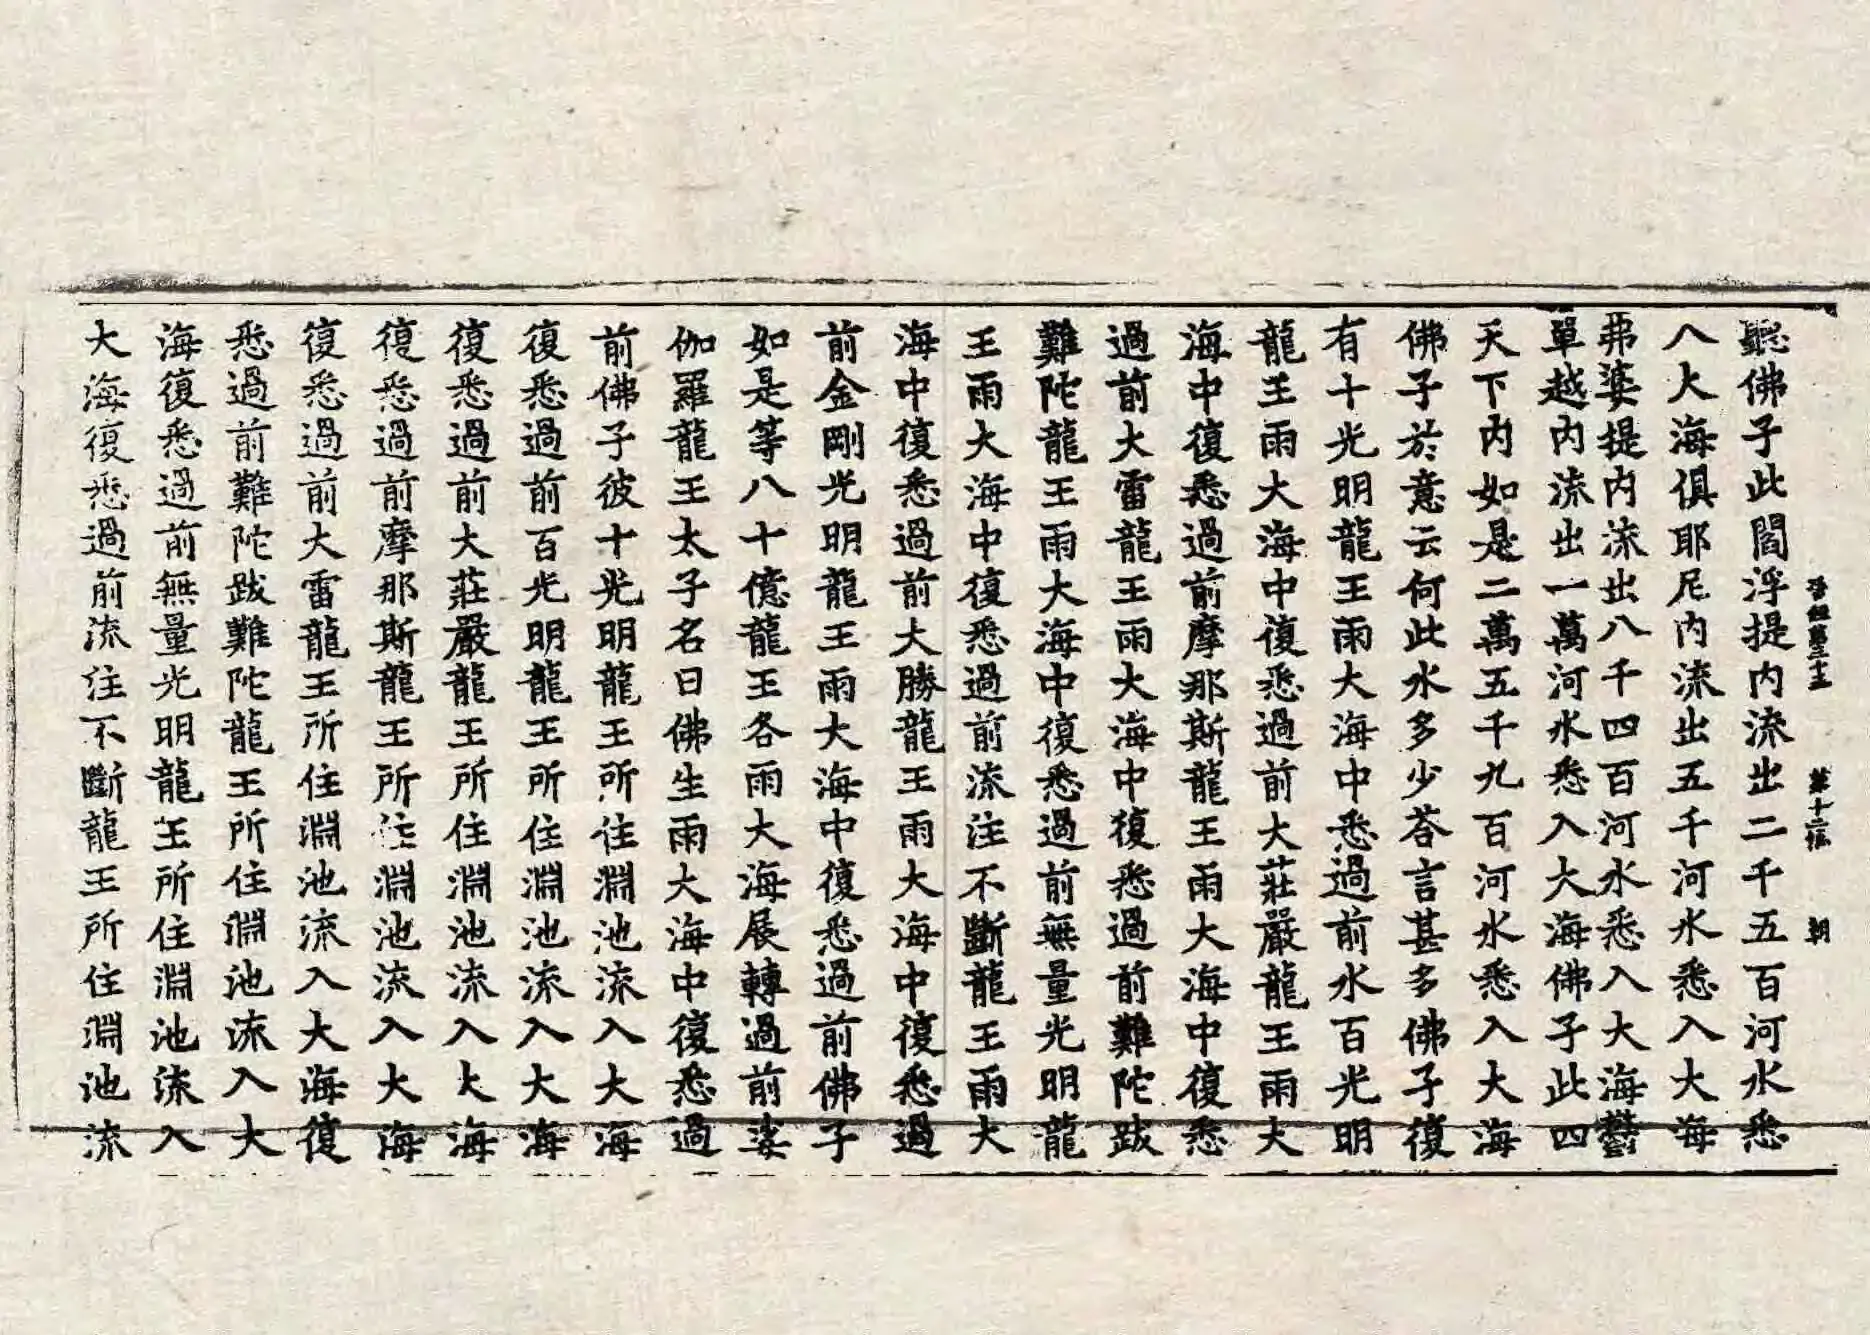 晉經卷三十五 第十二張 朝
聽佛子此閻浮提內流出二千五百河水悉
入大海俱耶尼內流出五千河水悉入大海
弗婆提內流出八千四百河水悉入大海欝
單越內流出一萬河水悉入大海佛子此四
天下內如是二萬五千九百河水悉入大海
佛子於意云何此水多少荅言甚多佛子復
有十光明龍王雨大海中悉過前水百光明
龍王雨大海中復悉過前大莊嚴龍王雨大
海中復悉過前摩那斯龍王雨大海中復悉
過前大雷龍王雨大海中復悉過前難陀跋
難陀龍王雨大海中復悉過前無量光明龍
王雨大海中復悉過前流注不斷龍王雨大
海中復悉過前大勝龍王雨大海中復悉過
前金剛光明龍王雨大海中復悉過前佛子
如是等八十億龍王各雨大海展轉過前娑
伽羅龍王太子名曰佛生雨大海中復悉過
前佛子彼十光明龍王所住淵池流入大海
復悉過前百光明龍王所住淵池流入大海
復悉過前大莊嚴龍王所住淵池流入大海
復悉過前摩那斯龍王所住淵池流入大海
復悉過前大雷龍王所住淵池流入大海復
悉過前難陀跋難陀龍王所住淵池流入大
海復悉過前無量光明龍王所住淵池流入
大海復悉過前流注不斷龍王所住淵池流